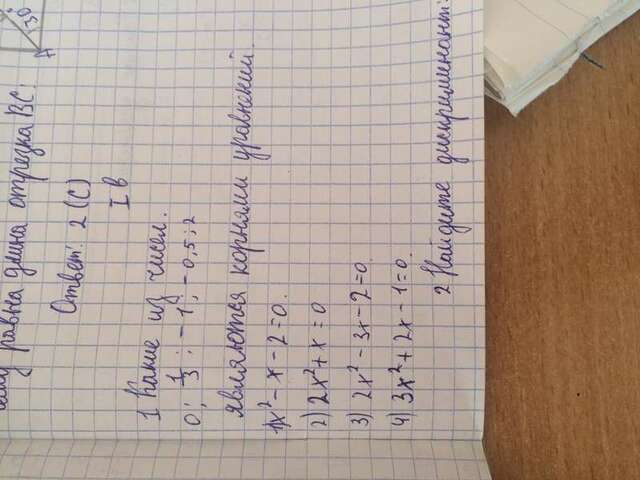 30°
A
равна длина отрезка BC:
Ответ: 2 (С)
I в
1 Какие из чисел.
0; 1/3; -1; -0,5; 2
являются корнями уравнений.
1) x² - x - 2 = 0.
2) 2x² + x = 0
3) 2x² - 3x - 2 = 0
4) 3x² + 2x - 1 = 0.
2 Найдите дискриминант: